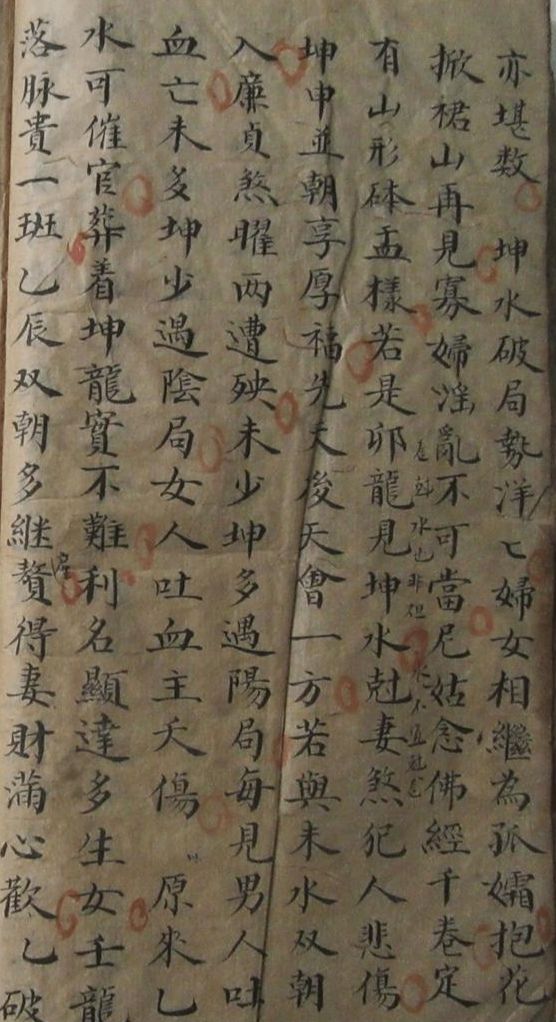 亦堪数 坤水破局势洋〻婦女相繼為孤孀抱花
掀裙山再見寡婦淫亂不可當尼姑念佛經千卷定
有山形砵盂樣若是卯龍見坤水尅妻煞犯人悲傷
坤申並朝享厚福先天後天會一方若與未水双朝
入廉貞煞曜两遭殃未少坤多遇陽局每見男人吐
血亡未多坤少遇陰局女人吐血主夭傷 原來乙
水可催官葬着坤龍實不難利名顯達多生女壬龍
落脉貴一班乙辰双朝多継贅得妻財滿心歡乙破